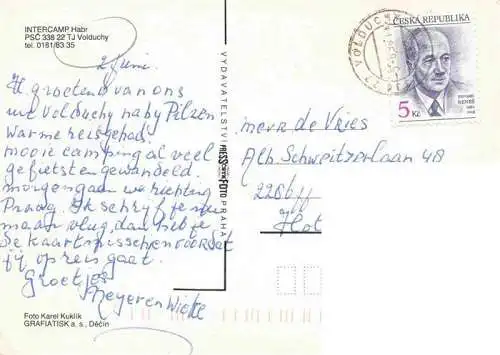 INTERCAMP Habr
PSČ 338 22 TJ Volduchy
tel. 0181/83 35
2 juni.
H. groeten van ons
uit Volduchy naby Pilzen
warme reis gehad.
mooie camping al veel
gefietst en gewandeld.
morgen gaan we richting
Praag. Ik schrijf je nu
maar vlug dan heb je
de kaart misschien voordat
jij op reis gaat.
Groetjes
Meyer en Wietke
Foto Karel Kuklík
GRAFIATISK a. s., Děčín
VYDAVATELSTVÍ PRESSFOTO PRAHA
VOLDUCHY
ČESKÁ REPUBLIKA
EDVARD
BENEŠ
1884
1948
5 Kč
mevr de Vries
Alb. Schweitzerlaan 48
Hol